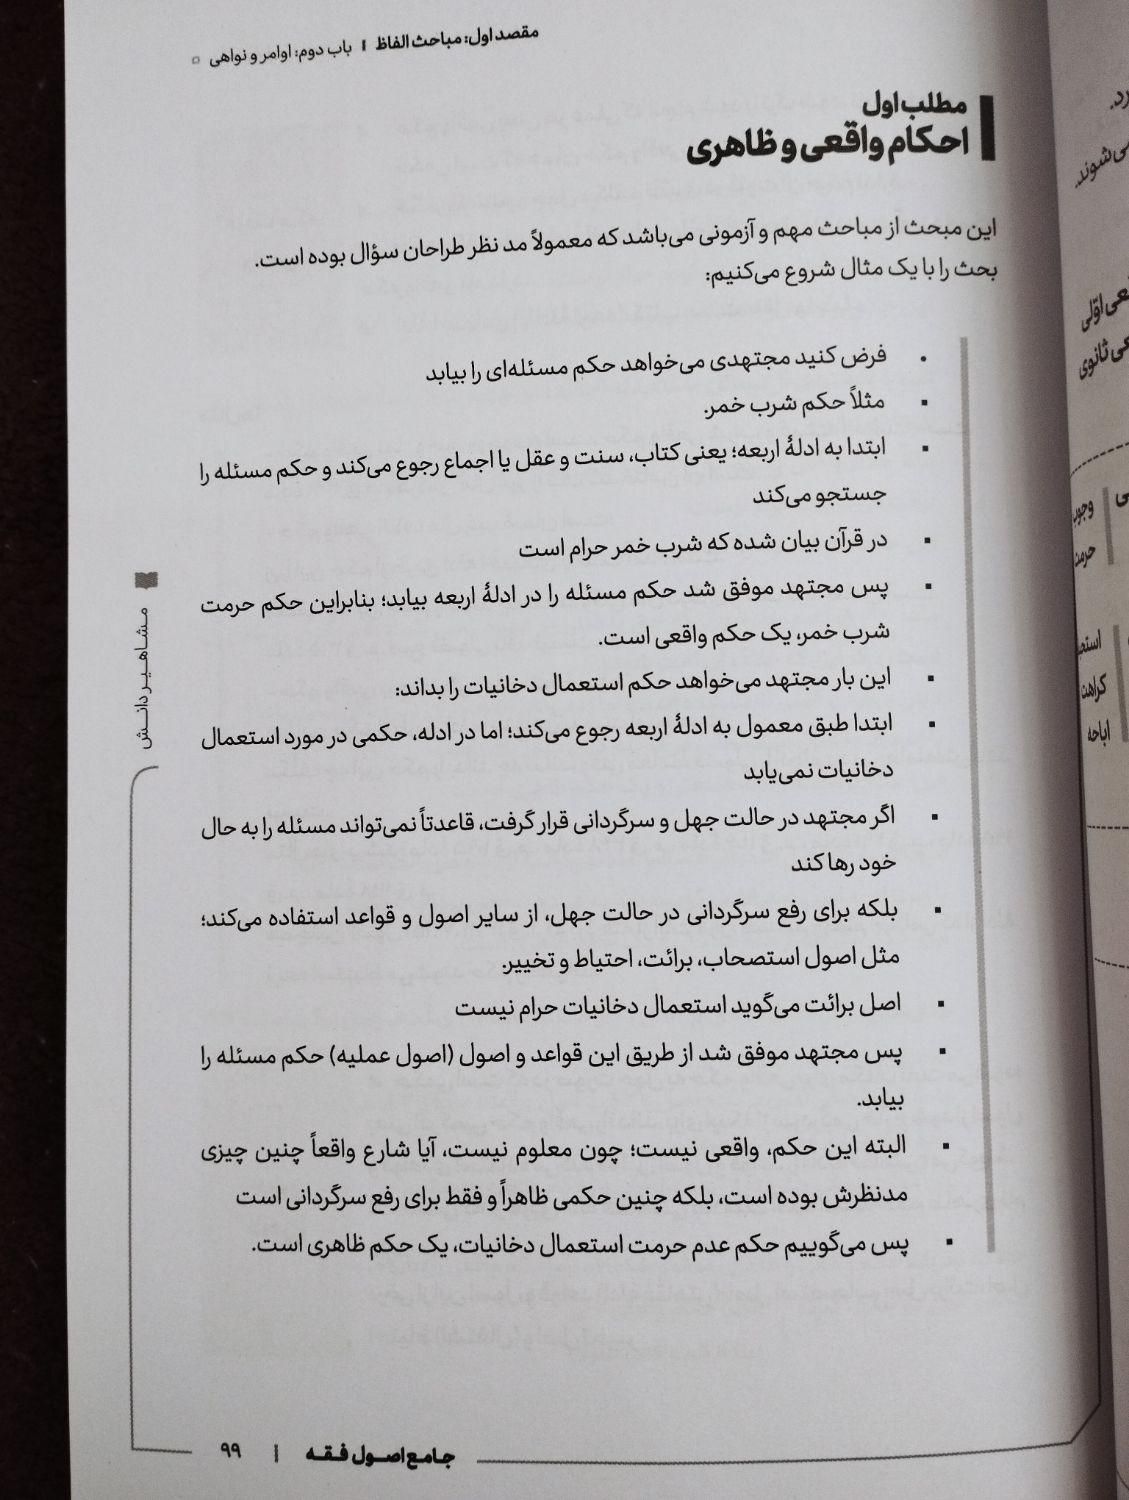 مقصد اول: مباحث الفاظ | باب دوم: اوامر و نواهی
مطلب اول
احکام واقعی و ظاهری
این مبحث از مباحث مهم و آزمونی می‌باشد که معمولاً مد نظر طراحان سؤال بوده است.
بحث را با یک مثال شروع می‌کنیم:
▪ فرض کنید مجتهدی می‌خواهد حکم مسئله‌ای را بیابد
▪ مثلاً حکم شرب خمر.
▪ ابتدا به ادلۀ اربعه؛ یعنی کتاب، سنت و عقل یا اجماع رجوع می‌کند و حکم مسئله را
جستجو می‌کند
▪ در قرآن بیان شده که شرب خمر حرام است
▪ پس مجتهد موفق شد حکم مسئله را در ادلۀ اربعه بیابد؛ بنابراین حکم حرمت
شرب خمر، یک حکم واقعی است.
▪ این بار مجتهد می‌خواهد حکم استعمال دخانیات را بداند:
▪ ابتدا طبق معمول به ادلۀ اربعه رجوع می‌کند؛ اما در ادله، حکمی در مورد استعمال
دخانیات نمی‌یابد
▪ اگر مجتهد در حالت جهل و سرگردانی قرار گرفت، قاعدتاً نمی‌تواند مسئله را به حال
خود رها کند
▪ بلکه برای رفع سرگردانی در حالت جهل، از سایر اصول و قواعد استفاده می‌کند؛
مثل اصول استصحاب، برائت، احتیاط و تخییر.
▪ اصل برائت می‌گوید استعمال دخانیات حرام نیست
▪ پس مجتهد موفق شد از طریق این قواعد و اصول (اصول عملیه) حکم مسئله را
بیابد.
▪ البته این حکم، واقعی نیست؛ چون معلوم نیست، آیا شارع واقعاً چنین چیزی
مدنظرش بوده است، بلکه چنین حکمی ظاهراً و فقط برای رفع سرگردانی است
▪ پس می‌گوییم حکم عدم حرمت استعمال دخانیات، یک حکم ظاهری است.
مشاهیر دانش
جامع اصول فقه | ۹۹
می‌شوند.
اوّلی
ثانوی
وجوب
حرمت
کراهت
اباحه